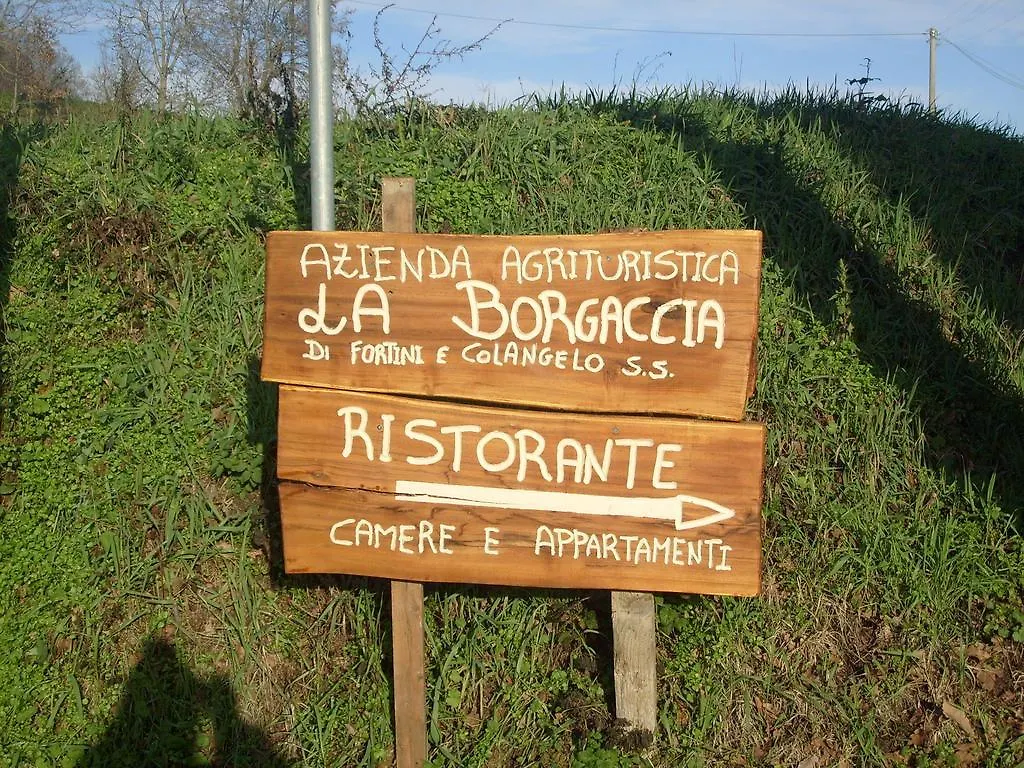 AZIENDA AGRITURISTICA
LA BORGACCIA
DI FORTINI E COLANGELO S.S.
RISTORANTE
CAMERE E APPARTAMENTI